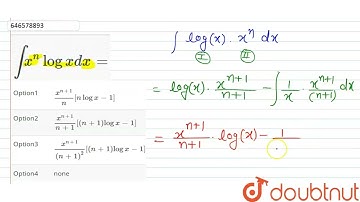 646578893
∫xⁿ log xdx =
Option1 xⁿ⁺¹/n [n log x − 1]
Option2 xⁿ⁺¹/(n + 1) [(n + 1) log x − 1]
Option3 xⁿ⁺¹/(n + 1)² [(n + 1) log x − 1]
Option4 none
∫ log(x) · xⁿ dx
I II
= log(x) · xⁿ⁺¹/(n+1) − ∫ 1/x · xⁿ⁺¹/(n+1) dx
= xⁿ⁺¹/(n+1) · log(x) − 1/(
doubtnut